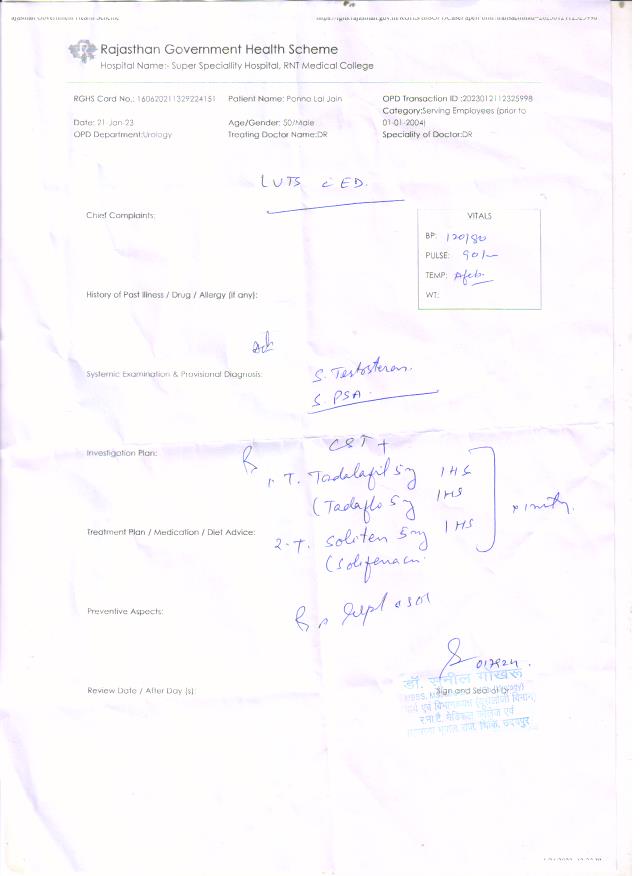 Rajasthan Government Health Scheme
Rajasthan Government Health Scheme
Hospital Name:- Super Speciallity Hospital, RNT Medical College
RGHS Card No.: 160620211329224151
Patient Name: Panna Lal Jain
OPD Transaction ID :2023012112325998
Category:Serving Employees (prior to
01-01-2004)
Date: 21-Jan-23
Age/Gender: 50/Male
OPD Department:Urology
Treating Doctor Name:DR
Speciality of Doctor:DR
LUTS c ED.
Chief Complaints:
VITALS
BP: 120/80
PULSE: 90/-
TEMP: Afeb.
WT:
History of Past Illness / Drug / Allergy (if any):
Adv
Systemic Examination & Provisional Diagnosis:
S. Testosteron.
S. PSA.
Investigation Plan:
CST +
1. T. Tadalafil 5mg 1 HS
(Tadaflo 5mg 1 HS
Treatment Plan / Medication / Diet Advice:
2. T. Soliten 5mg 1 HS
(Solifenacin
Preventive Aspects:
017924
Review Date / After Day (s):
Sign and Seal of Dr
डॉ. सुनील गोखरू